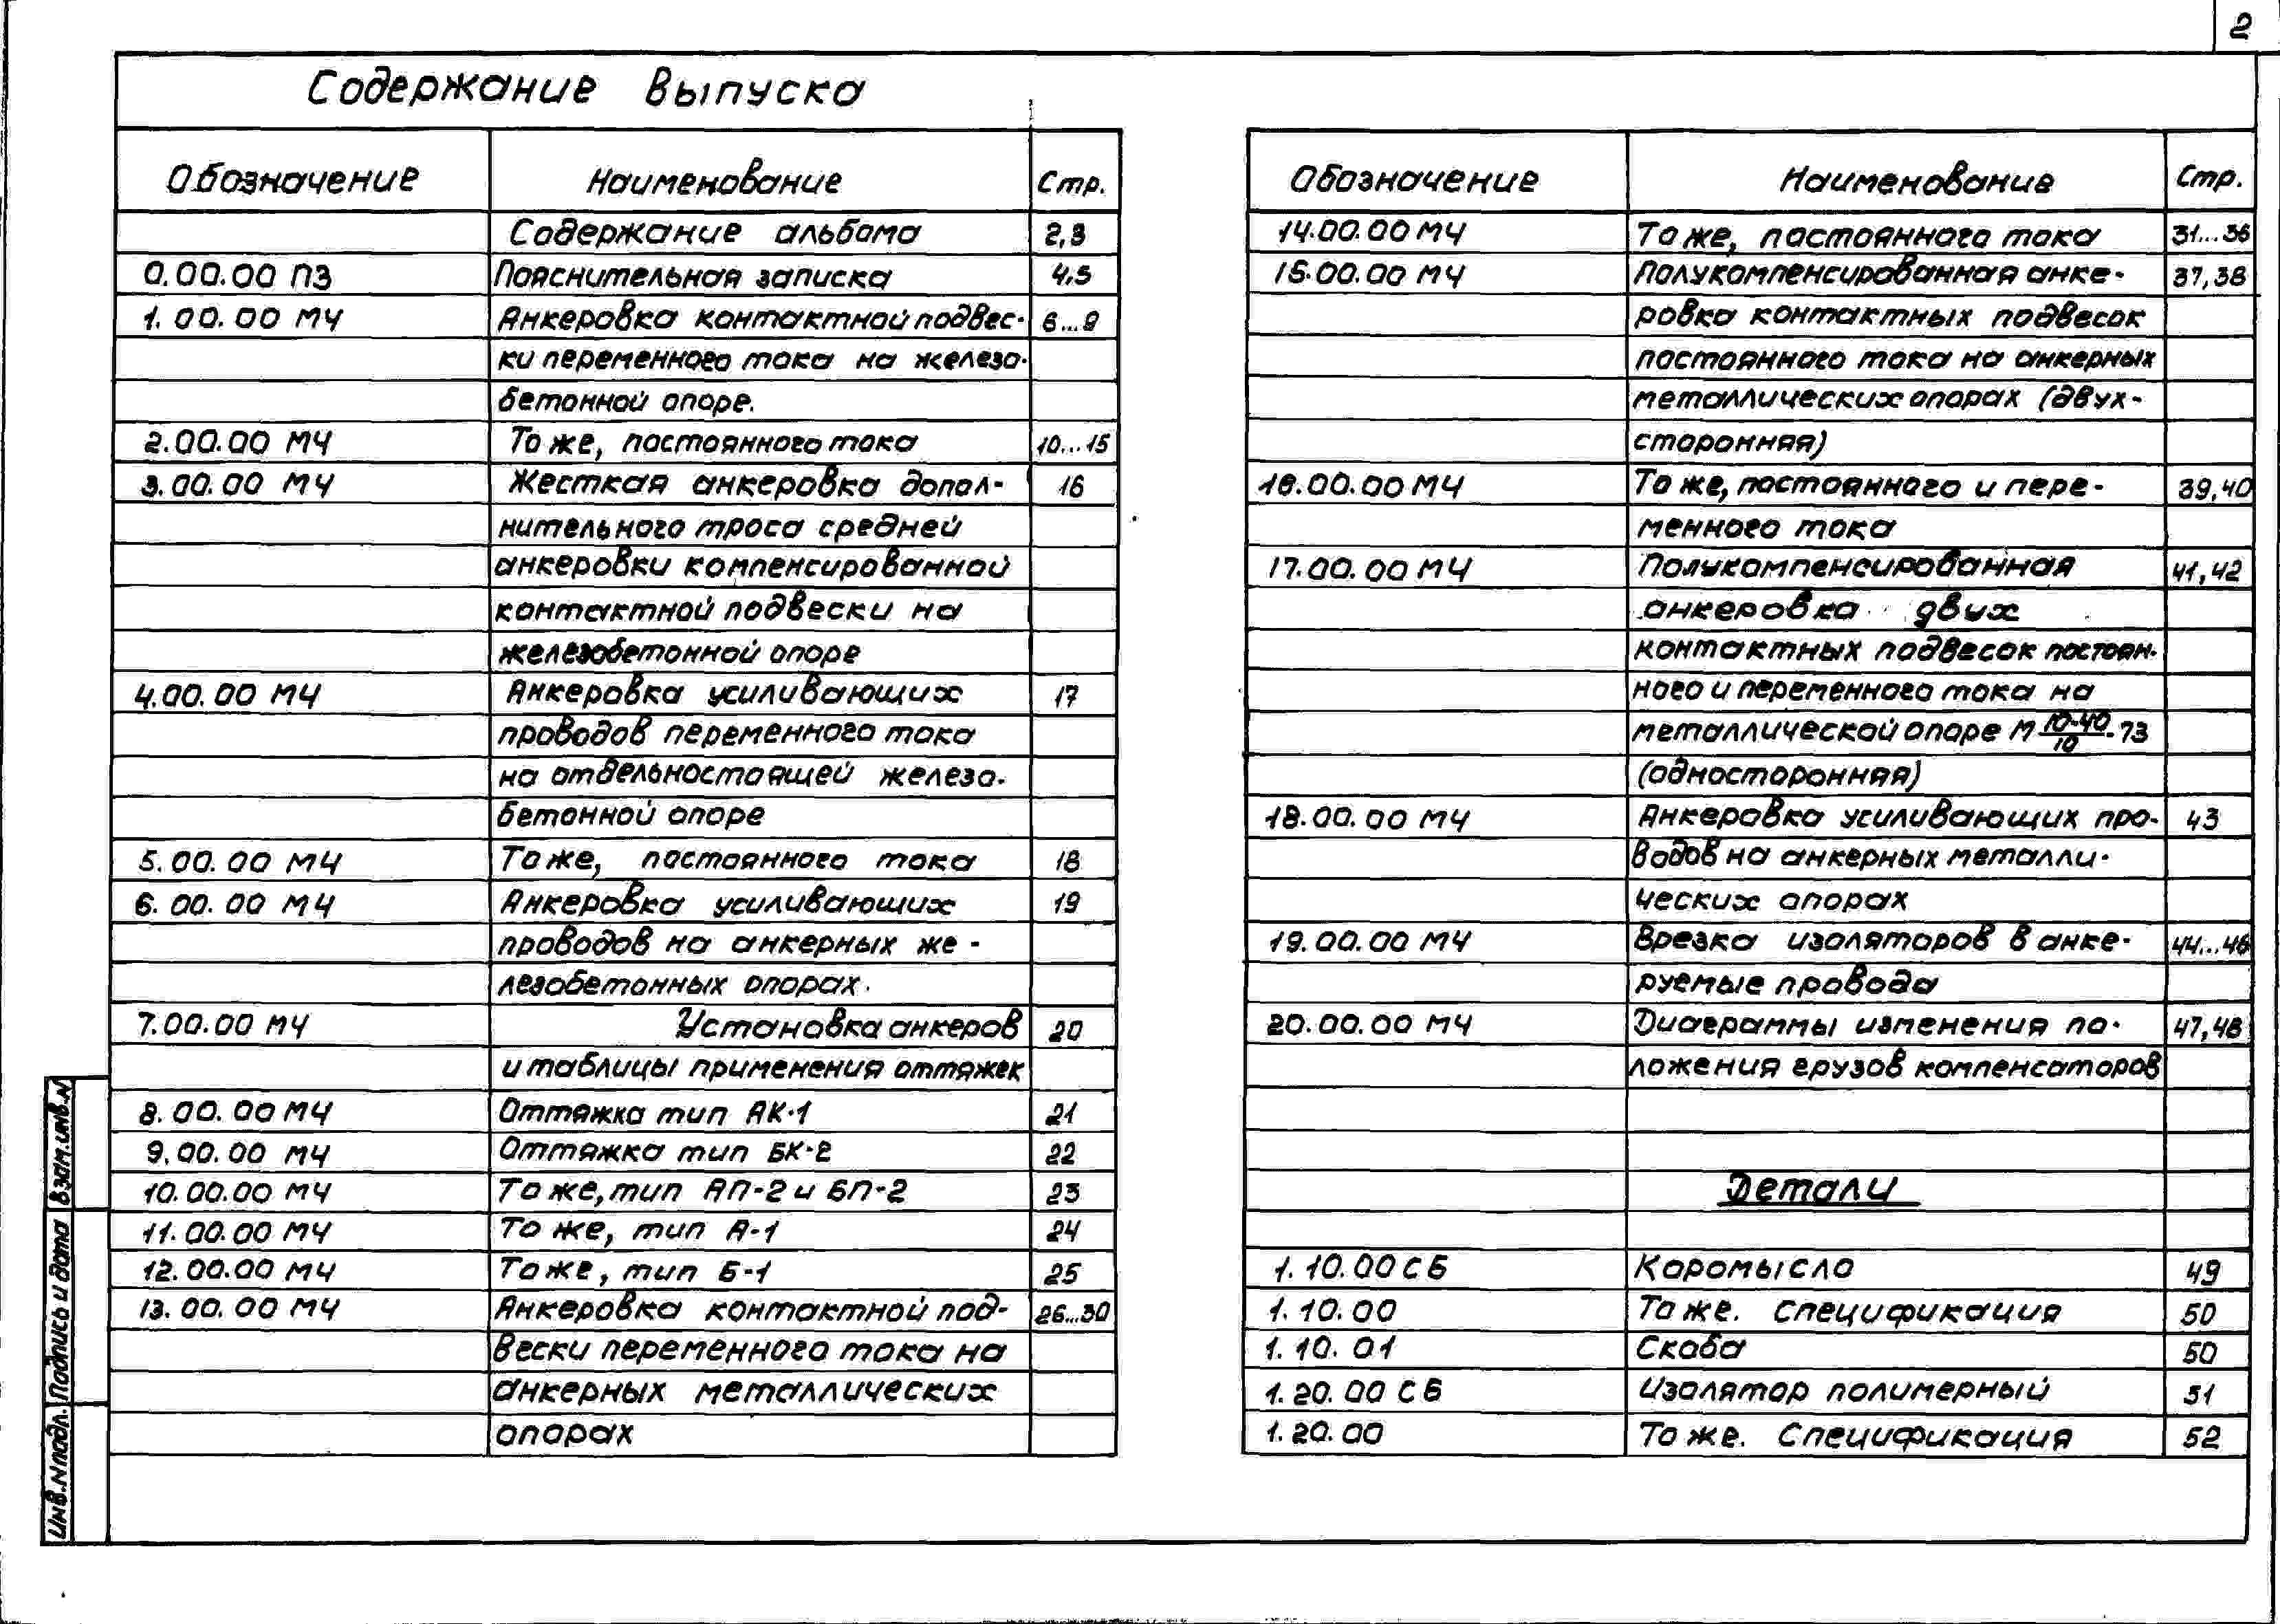 2
Содержание выпуска
Обозначение Наименование Стр.
Содержание альбома 2,3
0.00.00 ПЗ Пояснительная записка 4,5
1.00.00 МЧ Анкеровка контактной подвес- 6...9
ки переменного тока на железо-
бетонной опоре.
2.00.00 МЧ То же, постоянного тока 10...15
3.00.00 МЧ Жесткая анкеровка допол- 16
нительного троса средней
анкеровки компенсированной
контактной подвески на
железобетонной опоре
4.00.00 МЧ Анкеровка усиливающих 17
проводов переменного тока
на отдельностоящей железо-
бетонной опоре
5.00.00 МЧ То же, постоянного тока 18
6.00.00 МЧ Анкеровка усиливающих 19
проводов на анкерных же-
лезобетонных опорах.
7.00.00 МЧ Установка анкеров 20
и таблицы применения оттяжек
8.00.00 МЧ Оттяжка тип АК-1 21
9.00.00 МЧ Оттяжка тип БК-2 22
10.00.00 МЧ То же, тип АП-2 и БП-2 23
11.00.00 МЧ То же, тип А-1 24
12.00.00 МЧ То же, тип Б-1 25
13.00.00 МЧ Анкеровка контактной под- 26...30
вески переменного тока на
анкерных металлических
опорах
Обозначение Наименование Стр.
14.00.00 МЧ То же, постоянного тока 31...36
15.00.00 МЧ Полукомпенсированная анке- 37,38
ровка контактных подвесок
постоянного тока на анкерных
металлических опорах (двух-
сторонняя)
16.00.00 МЧ То же, постоянного и пере- 39,40
менного тока
17.00.00 МЧ Полукомпенсированная 41,42
анкеровка двух
контактных подвесок постоян-
ного и переменного тока на
металлической опоре М 10-40/10-73
(односторонняя)
18.00.00 МЧ Анкеровка усиливающих про- 43
водов на анкерных металли-
ческих опорах
19.00.00 МЧ Врезка изоляторов в анке- 44...46
руемые провода
20.00.00 МЧ Диаграммы изменения по- 47,48
ложения грузов компенсаторов
Детали
1.10.00 СБ Коромысло 49
1.10.00 То же. Спецификация 50
1.10.01 Скоба 50
1.20.00 СБ Изолятор полимерный 51
1.20.00 То же. Спецификация 52
Взам.инв.N
Подпись и дата
Инв.N подл.